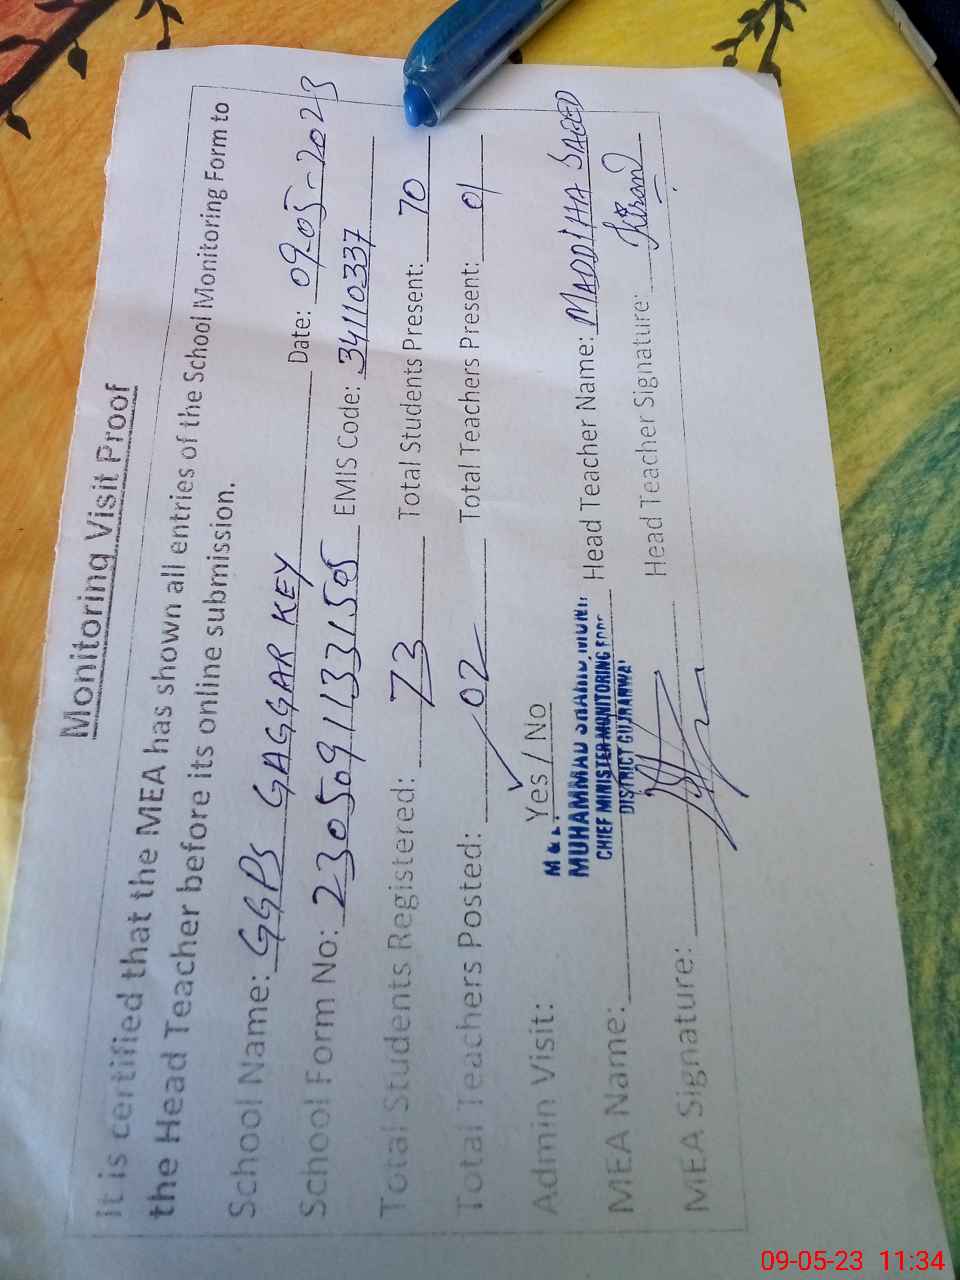 Monitoring Visit Proof
It is certified that the MEA has shown all entries of the School Monitoring Form to
the Head Teacher before its online submission.
School Name: GGPS GAGGAR KEY Date: 09-05-2023
School Form No: 23050911331505 EMIS Code: 34110337
Total Students Registered: 73 Total Students Present: 70
Total Teachers Posted: 02 Total Teachers Present: 01
Admin Visit: Yes / No
M &
MUHAMMAD
CHIEF MINISTER MONITORING
DISTRICT GUJRANWA
MEA Name: Head Teacher Name: MADDIHA SAEED
MEA Signature: Head Teacher Signature: Kiran
09-05-23 11:34